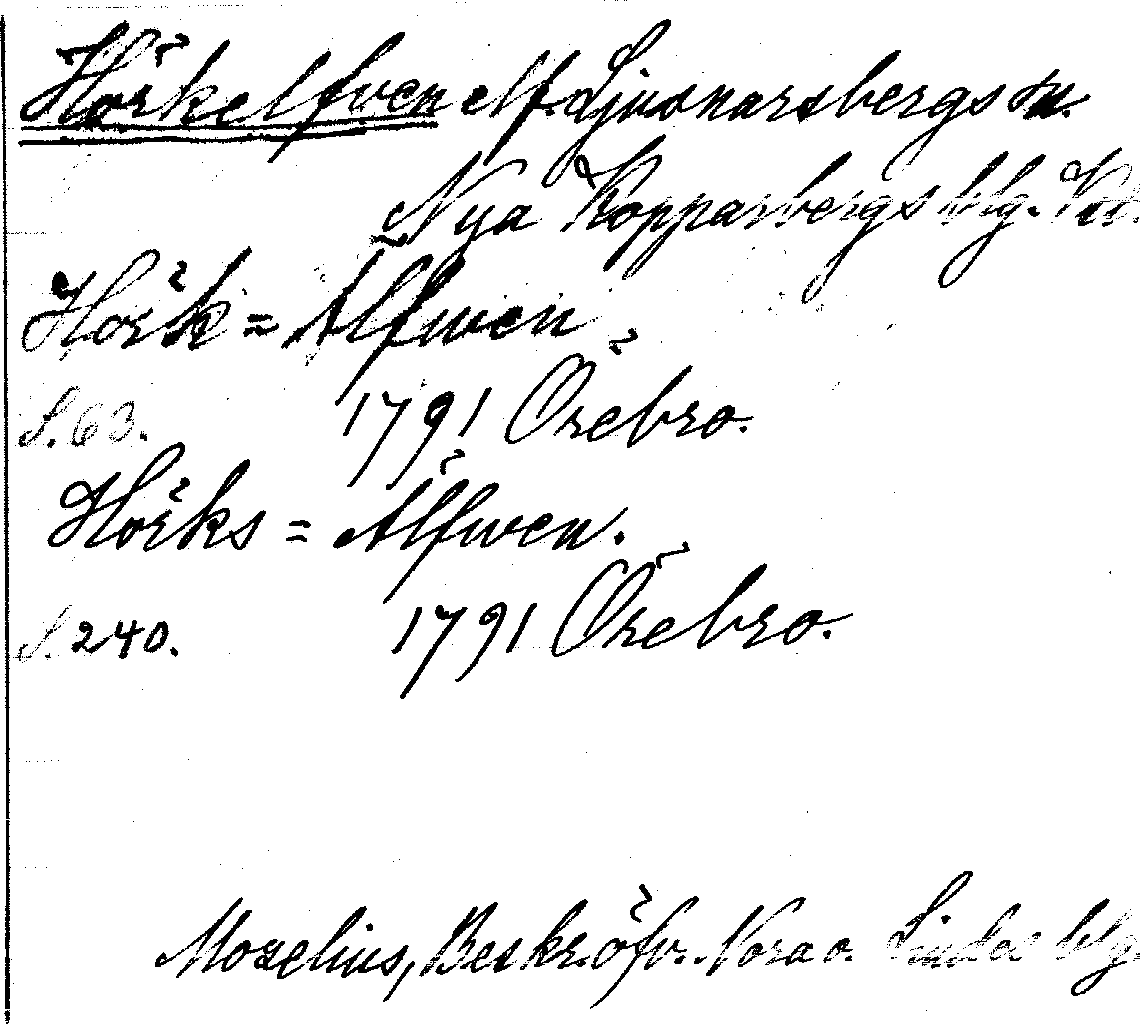 Hörkelfven elf. Ljusnarsbergs sn.
Nya Kopparbergs blg. Vstl.
Hörk = Älfwen
S. 63. 1791 Örebro.
Hörks = Älfwen.
S. 240. 1791 Örebro.
Moxelius, Beskr. öfv. Nora o. Lindes blg.